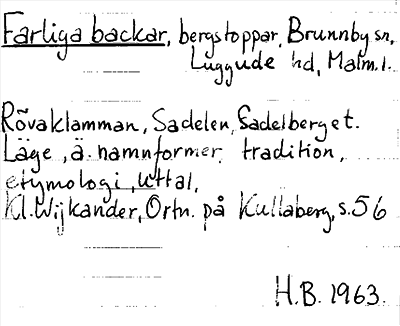 Farliga backar, bergstoppar, Brunnby sn,
Luggude hd, Malm.l.
Rövaklamman, Sadelen, Sadelberget.
Läge, ä. namnformer, tradition,
etymologi, uttal,
Kl. Wijkander, Ortn. på Kullaberg, s. 56
H.B. 1963.